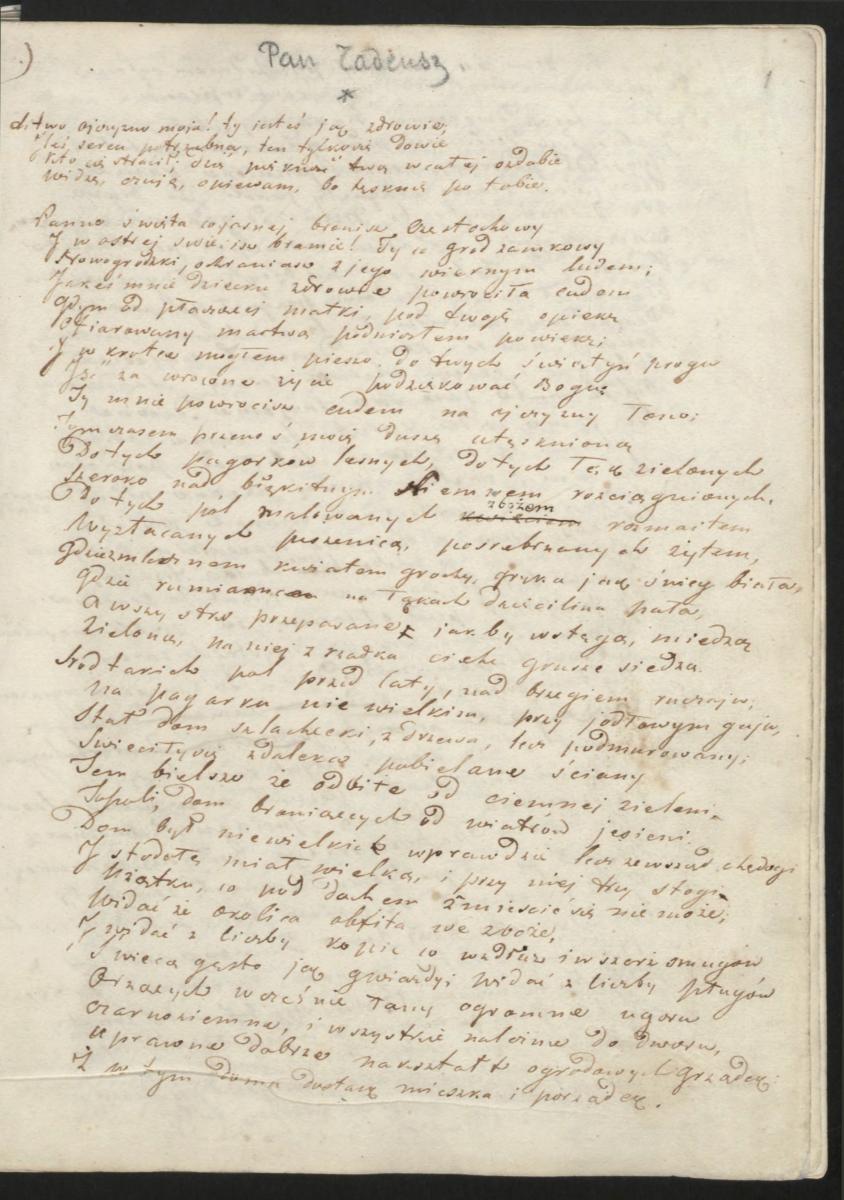 Pan Tadeusz.
*
1
Litwo ojczyzno moja! ty jesteś jak zdrowie,
Ileś serca potrzebna, ten tylko się dowie
Kto cię stracił; dziś piękność twą w całej ozdobie
widzę, czuję, opiewam, bo tęsknię po tobie.
Panno święta co jasnej bronisz Czestochowy
I w ostrej świecisz bramie! Ty co gród zamkowy
Nowogródzki, ochraniasz z jego wiernym ludem;
Jakeś mnie dziecku zdrowie powróciła cudem
gdym od płaczącej matki, pod twoją opiekę
Ofiarowany martwą podniosłem powiekę;
I w krotce mogłem pieszo, do twych świątyń progu
Iść za wrócone życie podziękować Bogu;
Ty mnie powrócisz cudem na ojczyzny łono;
Tymczasem przenoś moją duszę utęsknioną
Do tych pagorków leśnych, do tych łąk zielonych
Szeroko nad błękitnym Niemnem rozciągnionych,
Do tych pól malowanych zbożem rozmaitem
Wyzłacanych pszenicą, posrebrzanych żytem,
gdzie kwiatem grochy, gryka jak śnieg biała,
gdzie na łąkach dzięcilina pała,
A wszystko przepasane jakby wstęgą, miedzą
Zieloną, na niej z rzadka ciche grusze siedzą.
Śród takich pól przed laty, nad brzegiem ruczaju,
Na pagorku nie wielkim, przy jodłowym gaju,
Stał dom szlachecki, z drzewa, lecz podmurowany;
Świeciły się zdaleka pobielane ściany
Tem bielsze że odbite od ciemnej zieleni
Topoli, dom broniących od wiatrów jesieni.
Dom był niewielki wprawdzie lecz zewsząd chędogi
I stodołę miał wielką, i przy niej trzy stogi
, co pod dachem zmieścić się nie może;
Widać że okolica obfita we zboże,
I widać z liczby kopic co wzdłuż i wszerz smugów
Świecą gęsto jak gwiazdy; widać z liczby pługów
Orzących wcześnie łany ogromne ugoru
Czarnoziemne, i wszystkie należne do dworu,
uprawne dobrze nakształt ogrodowych grządek;
I w tym domu dostatek mieszka i porządek.